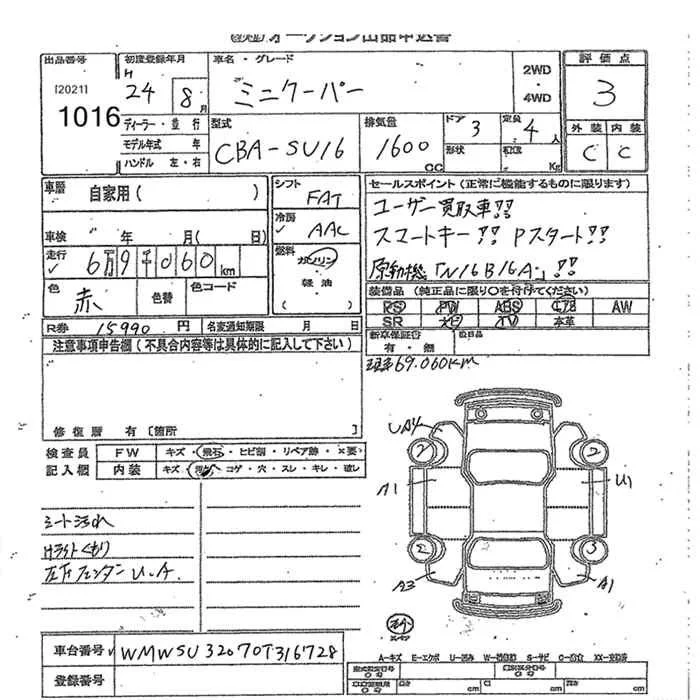 オークション出品申込書
出品番号
[2021]
1016
初度登録年月
H
24 8月
車名・グレード
ミニクーパー
2WD
・
4WD
評価点
3
ディーラー・並行
モデル年式 年
ハンドル 左・右
型式
CBA-SU16
排気量
1600
CC
ドア 3
形状
定員 4人
Kg
外装 内装
C C
車歴 自家用( )
車検 年 月( 日)
走行 6万9千060km
色 赤 色替 色コード
シフト
FAT
冷房
AAC
燃料
ガソリン
軽油
セールスポイント(正常に機能するものに限ります)
ユーザー買取車!!
スマートキー!! Pスタート!!
原動機「N16B16A」!!
装備品(純正品に限り○を付けてください)
PS PW ABS エアB AW
SR ナビ TV 本革
R券 15990円 名変通知期限 月 日
新車保証書
有・無
注意事項申告欄(不具合内容等は具体的に記入して下さい)
現車69.060KM
修復歴 有 [箇所 ]
検査員
記入欄
FW キズ・飛石・ヒビ割・リペア跡・×要
内装 キズ・汚れ・コゲ・穴・スレ・キレ・破レ
シート汚れ
Hライトくもり
左Fフェンダー U.A.
UA4
2 2
A1 U1
2 3
A3 A1
車台番号 WMWSU32070T316728
登録番号
A-キズ E-エクボ U-凹み W-補修跡 S-サビ C-腐食 XX-交換済
cm cm cm